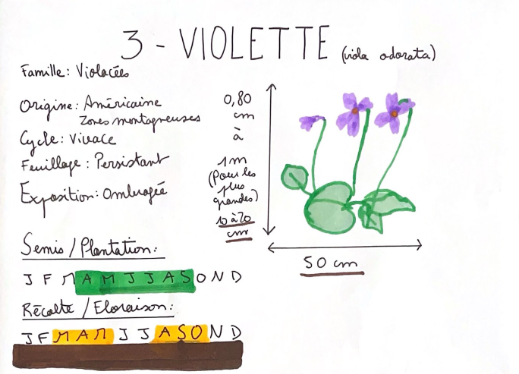 3 - VIOLETTE (viola odorata)
Famille: Violacées
Origine: Américaine
Zones montagneuses
Cycle: Vivace
Feuillage: Persistant
Exposition: Ombragée
0,80
cm
à
1m
(Pour les
plus
grandes)
10 à 20
cm
50 cm
Semis / Plantation:
J F M A M J J A S O N D
Récolte / Floraison:
J F M A M J J A S O N D